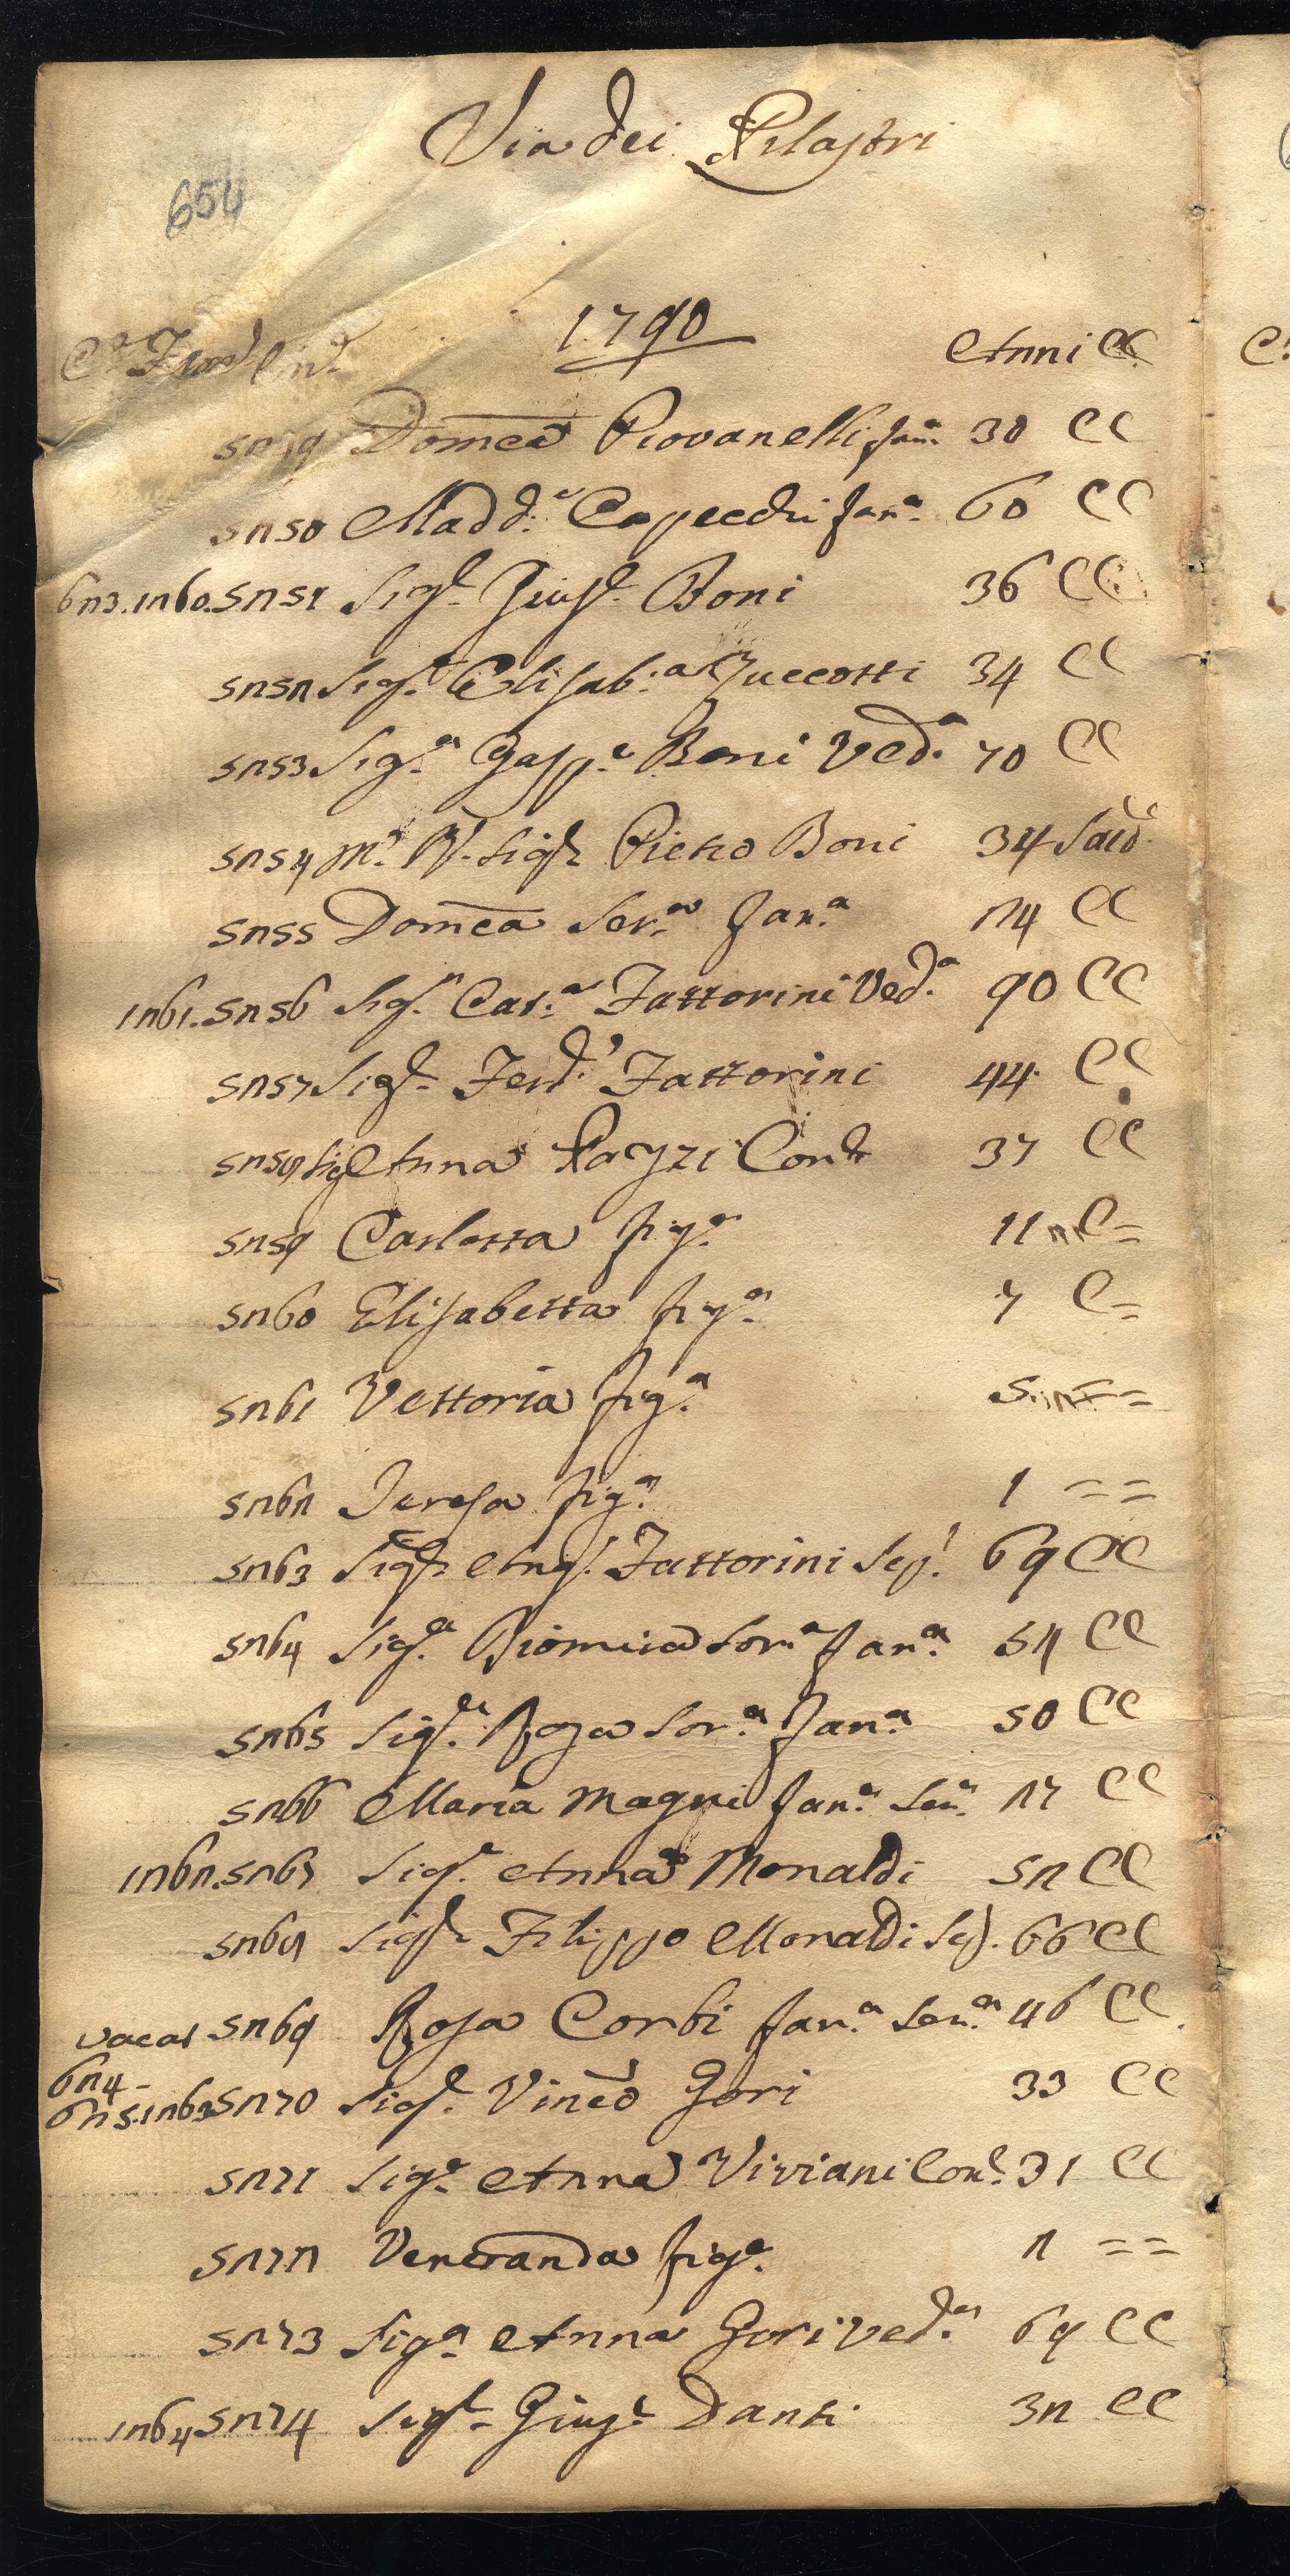 Via dei Pilastri
654
1790
Ce Fam Ind Anni CC
5249 Domca Piovanelli fana 30 CC
5250 Madda Capecchi fana 60 CC
623. 1260. 5251 Sigr Giuse Boni 36 CC
5252 Siga Elisaba Zuccotti 34 CC
5253 Siga Gaspe Boni Veda 70 CC
5254 Mo Rdo Sigr Pietro Boni 34 Sacd
5255 Domca Sera fana 24 CC
1261. 5256 Siga Cata Fattorini Veda 90 CC
5257 Sigr Ferdo Fattorini 44 CC
5258 Sig Anna Pazzi Conte 37 CC
5259 Carlotta figa 11 C=
5260 Elisabetta figa 7 C=
5261 Vettoria figa 5 = =
5262 Teresa figa 1 = =
5263 Sigr Ango Fattorini Sepo 69 CC
5264 Siga Diomira Sora fana 54 CC
5265 Siga Rosa Sora fana 50 CC
5266 Maria Magni fana Sera 27 CC
1262. 5267 Siga Anna Monaldi 52 CC
5268 Sigr Filippo Monaldi Sepo 66 CC
vacat 5269 Rosa Corbi fana Sera 46 CC
624
625. 1263 5270 Sigr Vinco Gori 33 CC
5271 Siga Anna Viviani Cone 31 CC
5272 Veneranda figa 2 = =
5273 Siga Anna Gori veda 69 CC
1264 5274 Sigr Giuse Danti 32 CC